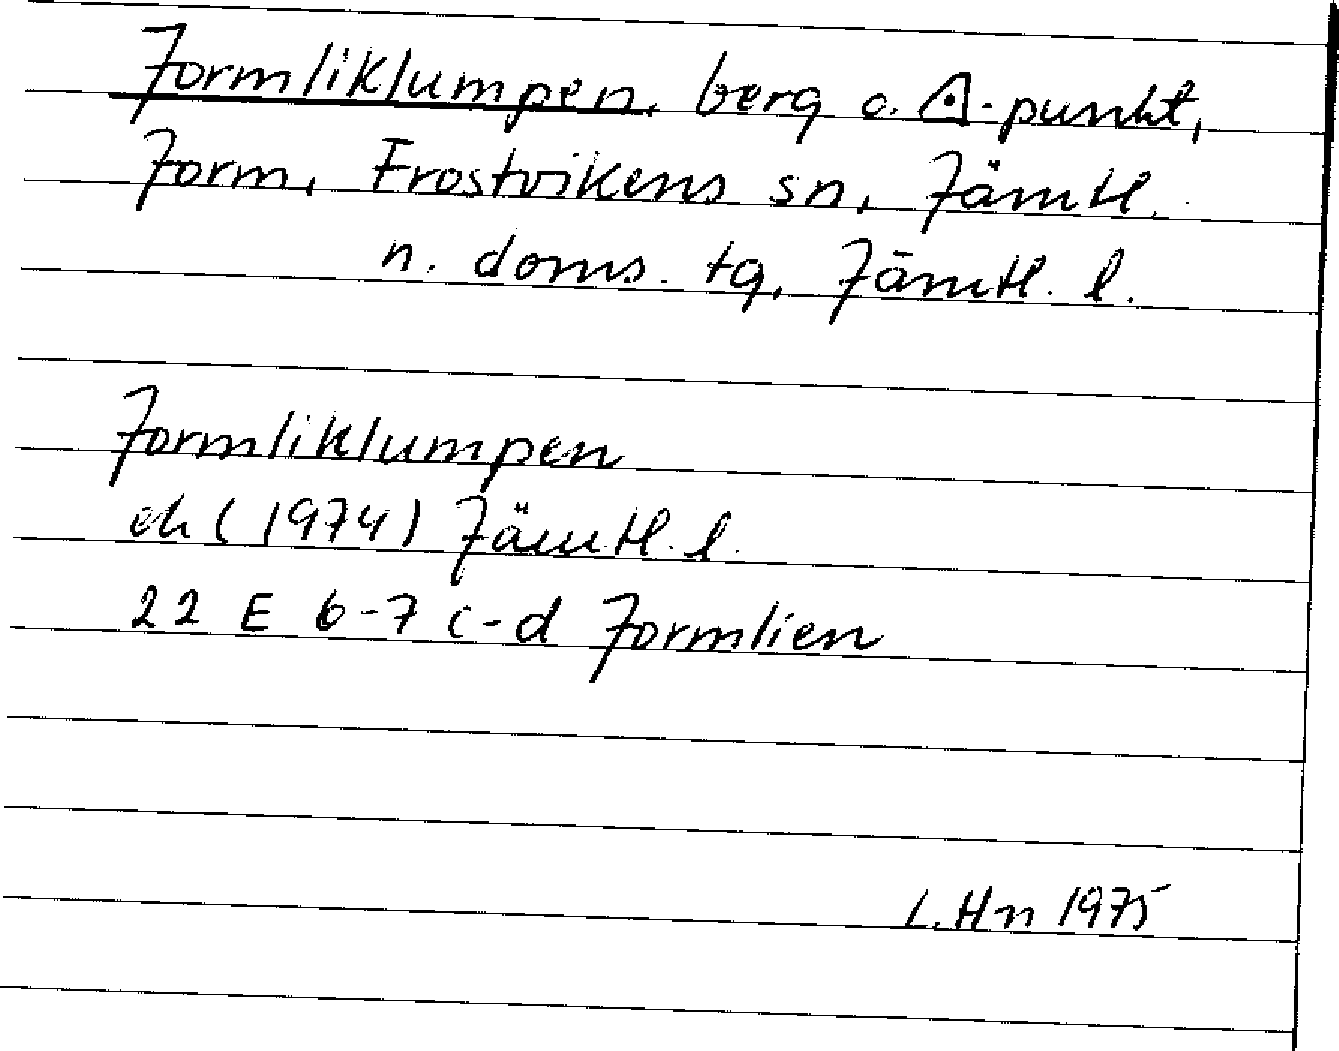 Jormliklumpen, berg o. ◬-punkt,
Jorm, Frostvikens sn, Jämtl.
n. doms. tg, Jämtl. l.
Jormliklumpen
ek (1974) Jämtl. l.
22 E 6-7 c-d Jormlien
L. Hn 1975